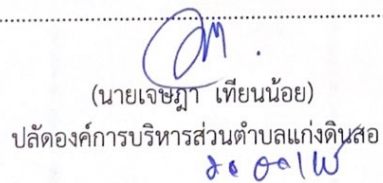 (นายเจษฎา เทียนน้อย)
ปลัดองค์การบริหารส่วนตำบลแก่งดินสอ